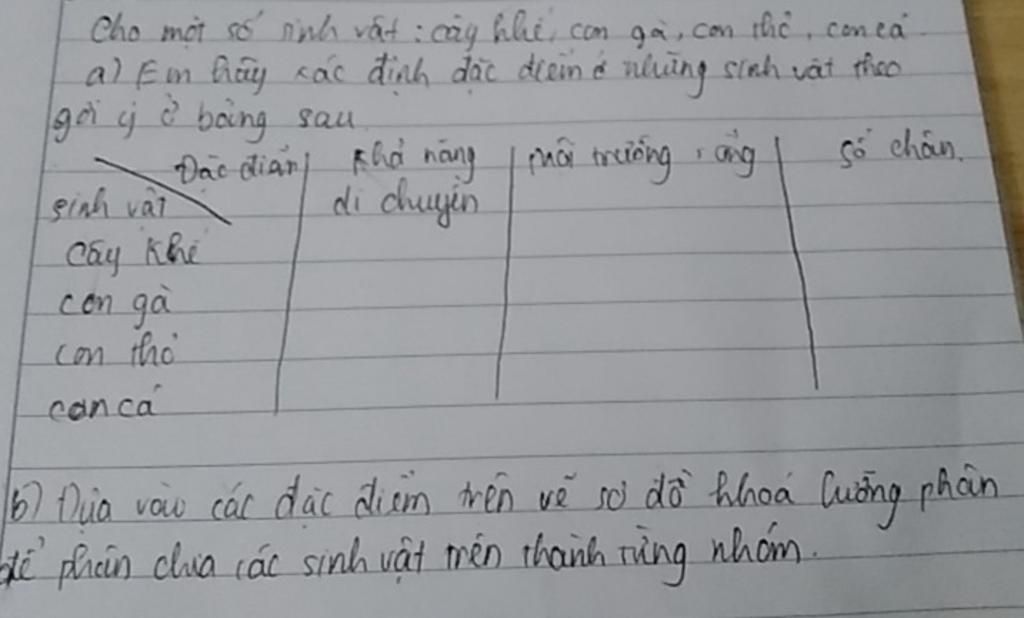 Cho một số sinh vật : cây khế, con gà, con thỏ, con cá.
a) Em hãy xác định đặc điểm ở những sinh vật theo
gợi ý ở bảng sau
Đặc điểm | Khả năng | Môi trường sống | Số chân.
sinh vật | di chuyển
Cây khế
con gà
con thỏ
con cá
b) Dựa vào các đặc điểm trên vẽ sơ đồ khoá lưỡng phân
để phân chia các sinh vật trên thành từng nhóm.